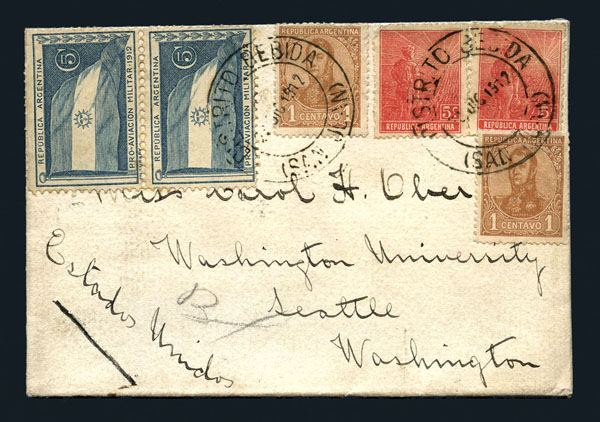 5
REPUBLICA ARGENTINA
PRO-AVIACION MILITAR-1912
5
REPUBLICA ARGENTINA
PRO-AVIACION MILITAR-1912
REPUBLICA ARGENTINA
1 CENTAVO 1
5 5
REPUBLICA ARGENTINA
REPUBLICA ARGENTINA
REPUBLICA ARGENTINA
1 CENTAVO 1
STRITO BEBIDA
(SAN
STRITO BEBIDA
(SAN
Miss Carol H. Ober
Washington University
Seattle
Washington
Estados Unidos
B